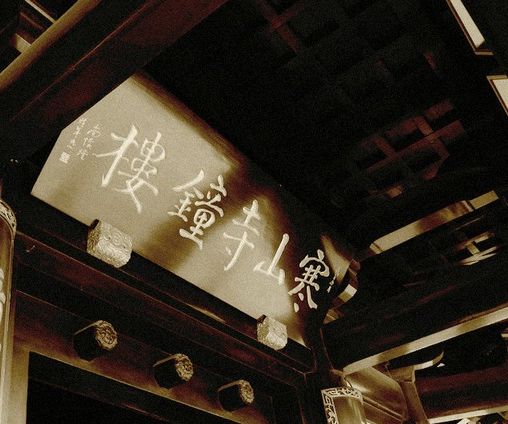 寒山寺鐘樓